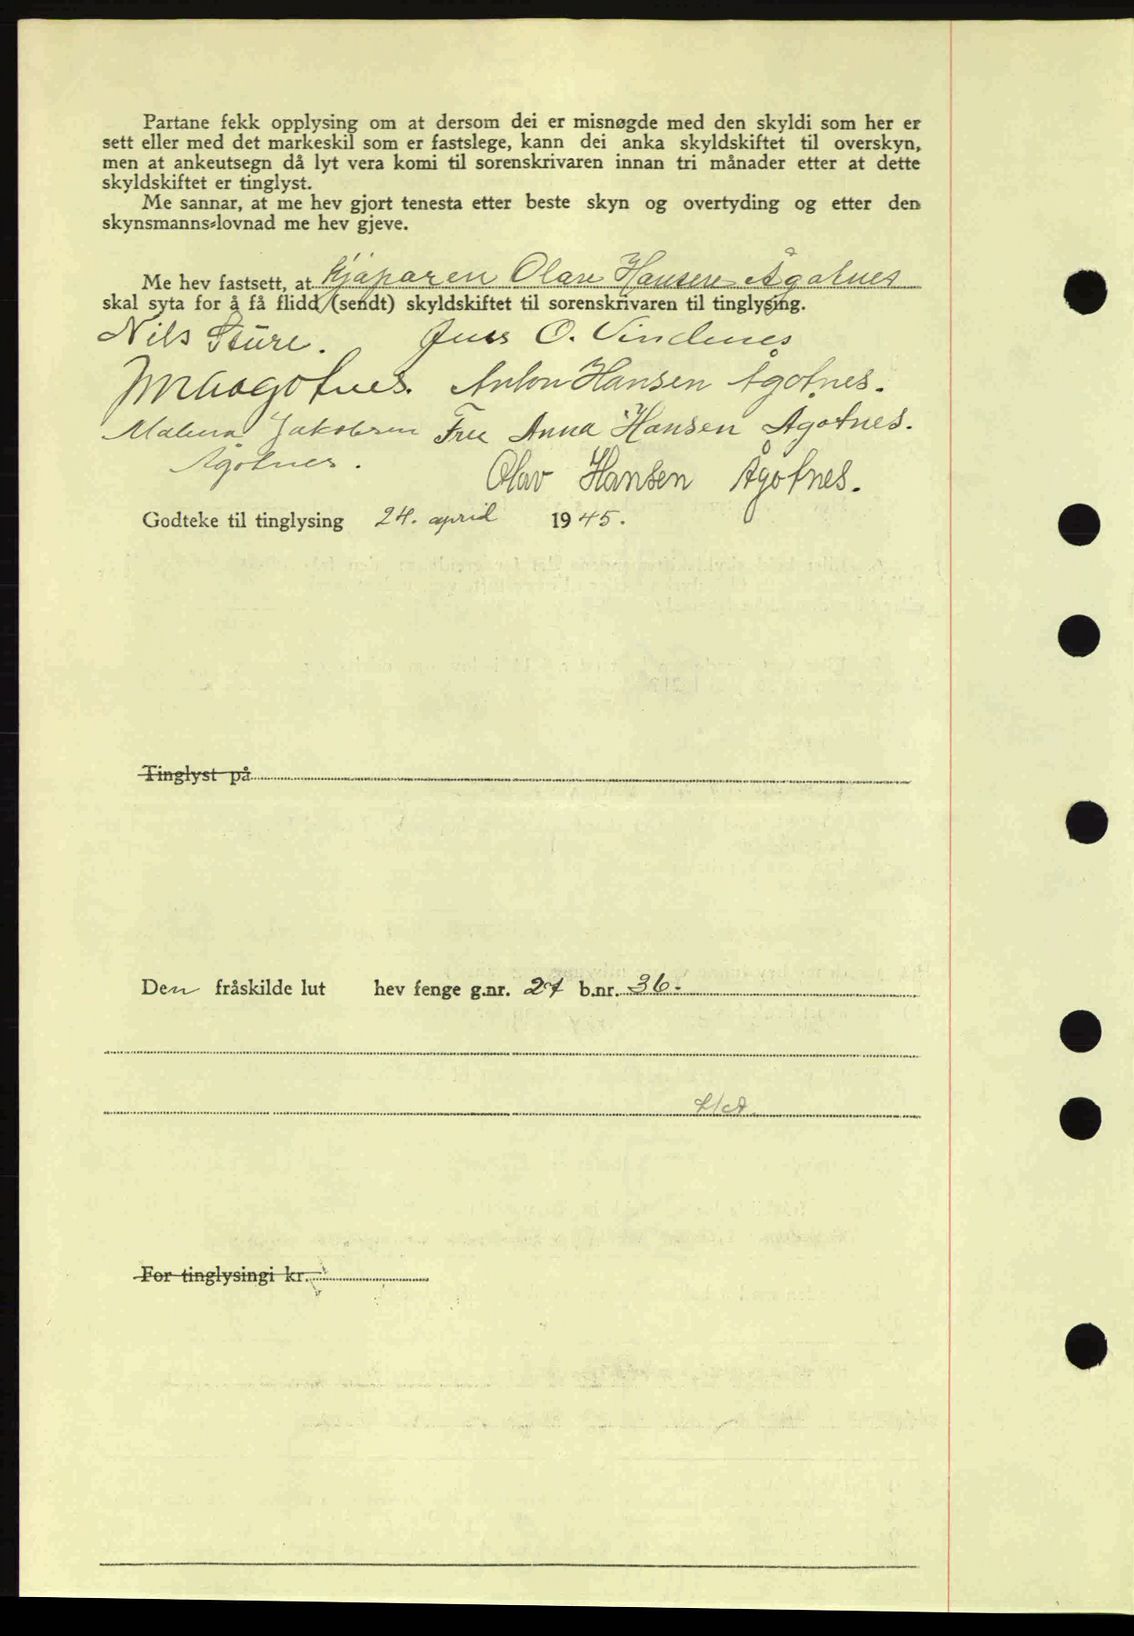 Partane fekk opplysing om at dersom dei er misnøgde med den skyldi som her er
sett eller med det markeskil som er fastslege, kann dei anka skyldskiftet til overskyn,
men at ankeutsegn då lyt vera komi til sorenskrivaren innan tri månader etter at dette
skyldskiftet er tinglyst.
Me sannar, at me hev gjort tenesta etter beste skyn og overtyding og etter den
skynsmanns-lovnad me hev gjeve.
Me hev fastsett, at Kjøparen Olav Hansen Ågotnes
skal syta for å få flidd (sendt) skyldskiftet til sorenskrivaren til tinglysing.
Nils Sture. Jens O. Vindenes
Ågotnes. Anton Hansen Ågotnes.
Malena Jakobsen Fru Anna Hansen Agotnes.
Ågotnes. Olav Hansen Ågotnes.
Godteke til tinglysing 24. april 1945.
Tinglyst på
Den fråskilde lut hev fenge g.nr. 27 b.nr. 36.
For tinglysingi kr.